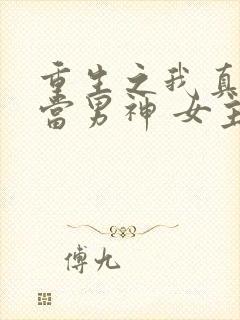 重生之我真
当男神 女主
傅九